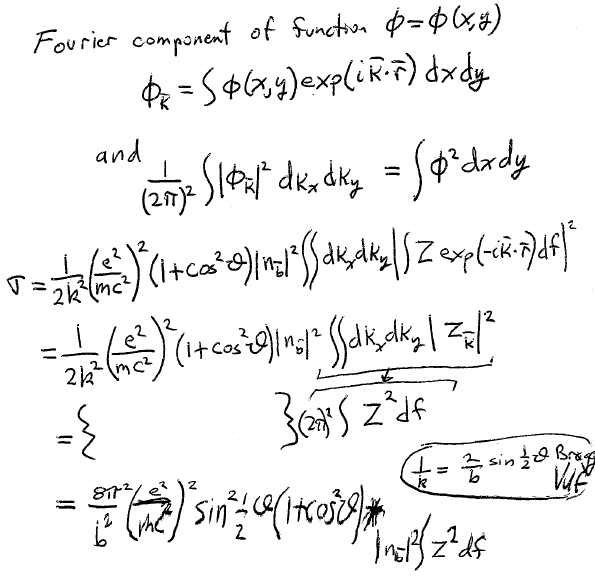 Fourier component of function ϕ=ϕ(x,y)
ϕ_k̄ = ∫ϕ(x,y)exp(ik̄·r̄) dxdy
and
1/(2π)² ∫|ϕ_k̄|² dk_x dk_y = ∫ϕ² dxdy
σ = 1/2k² (e²/mc²)² (1+cos²ϑ)|n_b̄|² ∫∫dk_x dk_y |∫ Z exp(-ik̄·r̄)df|²
= 1/2k² (e²/mc²)² (1+cos²ϑ)|n_b̄|² ∫∫dk_x dk_y | Z_k̄ |²
= { }(2π)² ∫ Z² df
1/k = 2/b sin ½ϑ Bragg Vulf
= 8π²/b² (e²/mc²)² sin² ½ ϑ (1+cos²ϑ)
|n_b̄|² ∫ Z² df